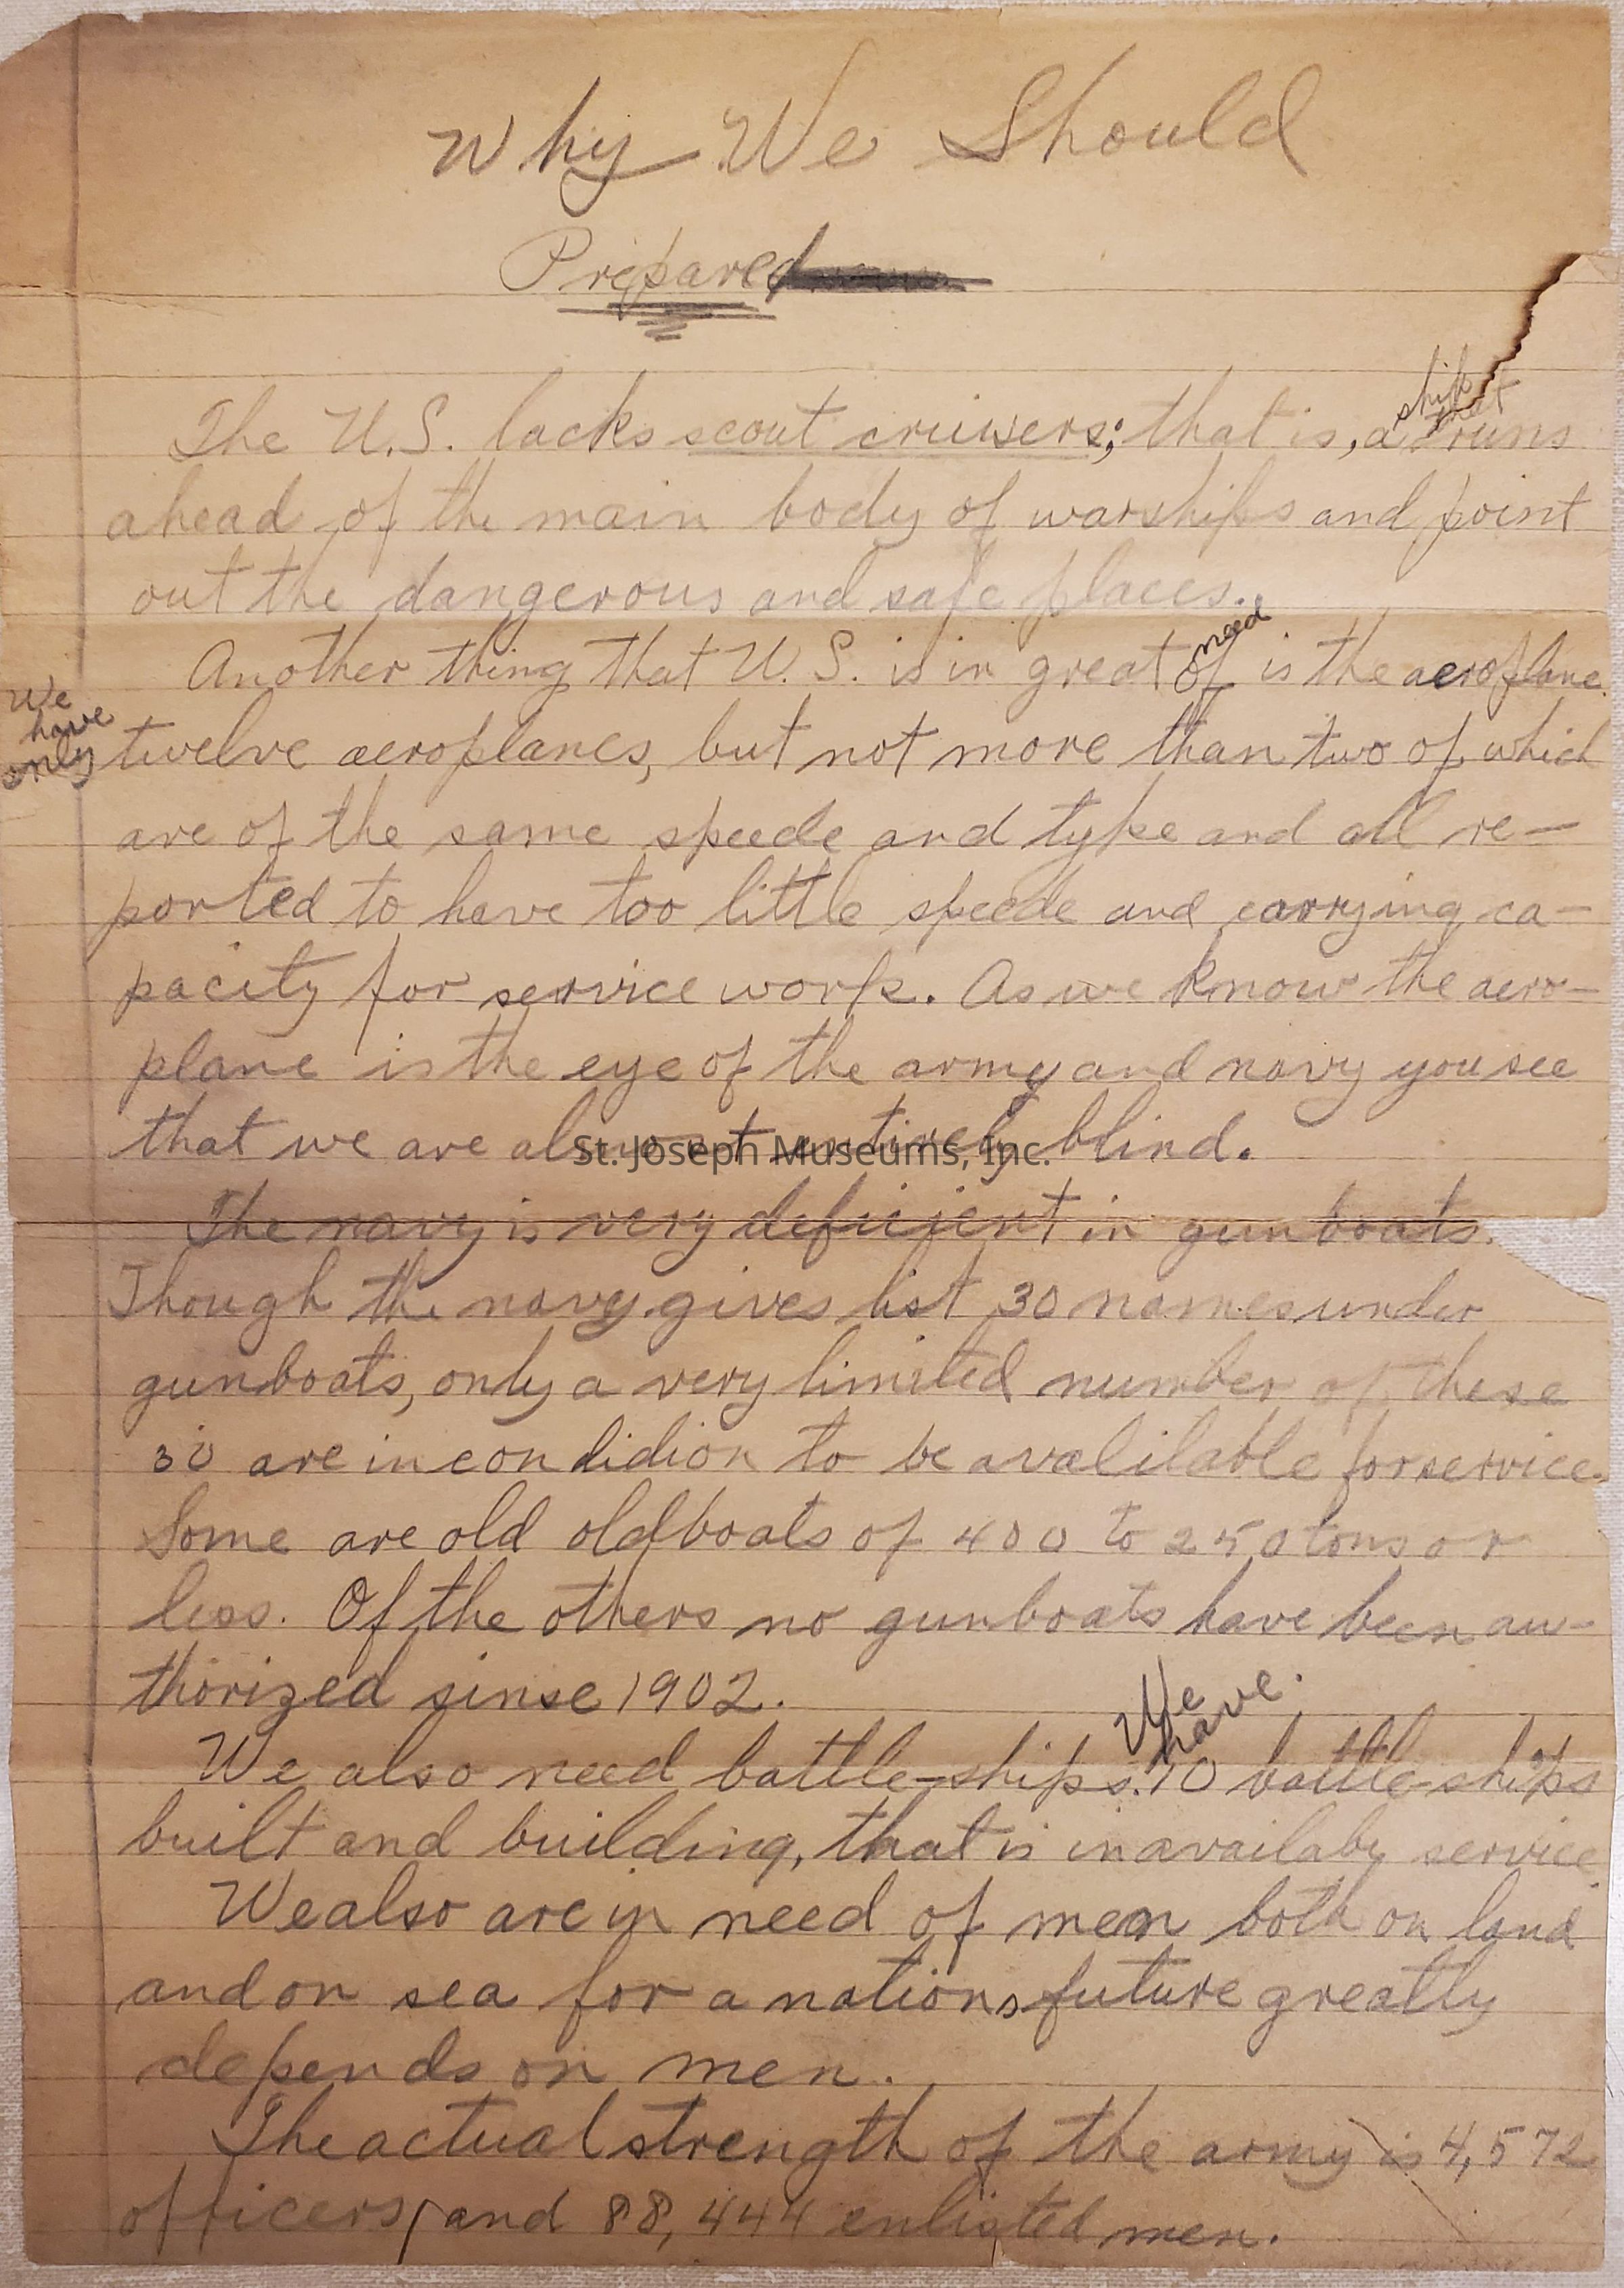 Why We Should
Prepared
The U.S. lacks scout cruisers; that is, a ship that runs
ahead of the main body of warships and point
out the dangerous and safe places.
Another thing that U.S. is in great need of is the aeroplane.
We have only twelve aeroplanes, but not more than two of which
are of the same speede and type and all re-
ported to have too little speede and carrying ca-
pacity for service work. As we know the aero-
plane is the eye of the army and navy you see
that we are almost entirely blind.
St. Joseph Museums, Inc.
The navy is very deficient in gunboats.
Though the navy gives list 30 names under
gunboats, only a very limited number of these
30 are in condidion to be avalilable for service.
Some are old old boats of 400 to 250 tons or
less. Of the others no gunboats have been au-
thorized sinse 1902.
We also need battle-ships. We have 10 battle-ships
built and building, that is in availaby service.
We also are in need of men both on land
and on sea for a nations future greatly
depends on men.
The actual strength of the army is 4,572
officers, and 88,444 enlisted men.